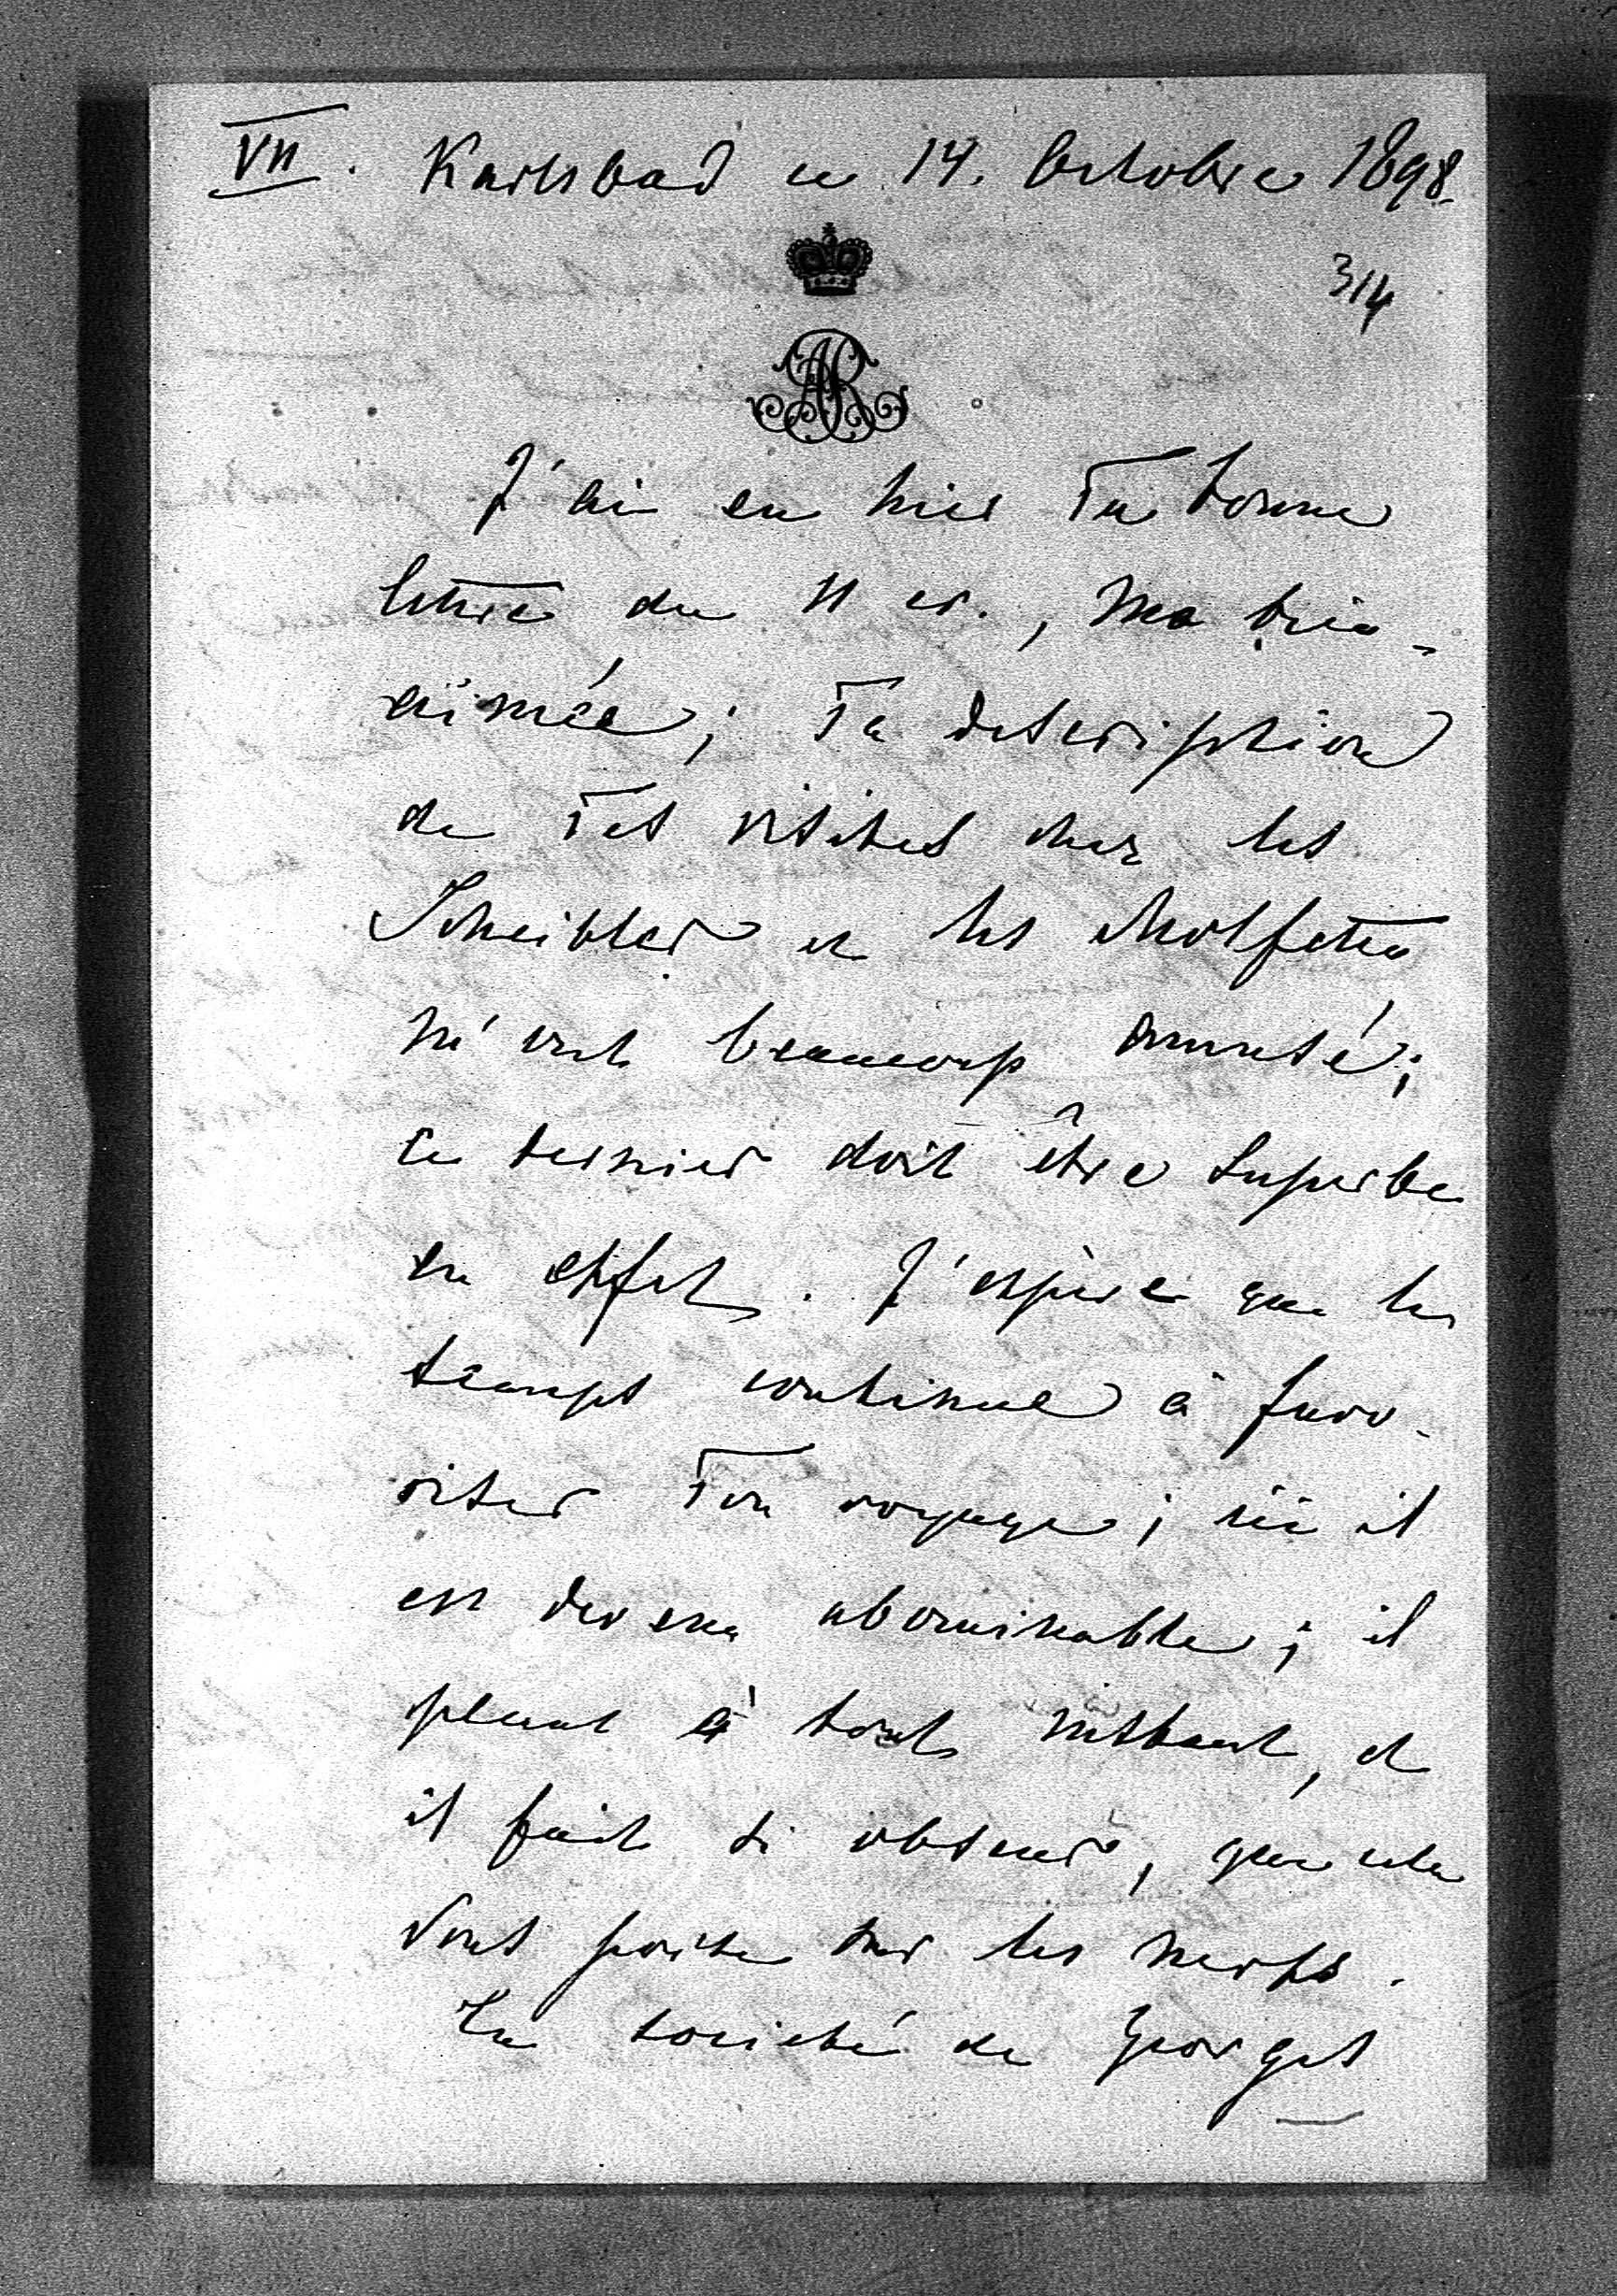 VII. Karlsbad ce 14. Octobre 1898.
314
AR
J'ai eu hier Ta bonne
lettre du 11 cr., ma bien-
aimée; Ta description
de Tes visites chez les
Scheibler et les Molfetta
m'ont beaucoup amusé;
ce dernier doit être superbe
en effet. J'espère que le
temps continue à favo-
riser Ton voyage; ici il
est devenu abominable; il
pleut à tout instant, et
il fait si obscur, que cela
vous porte sur les nerfs.
La société de Georges